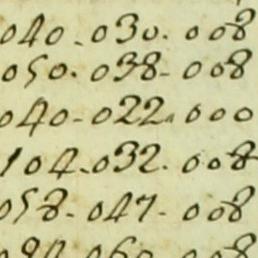 040 - 030 . 008
050 . 038 - 008
040 - 022 . 000
104 - 032 . 008
058 - 047 - 008